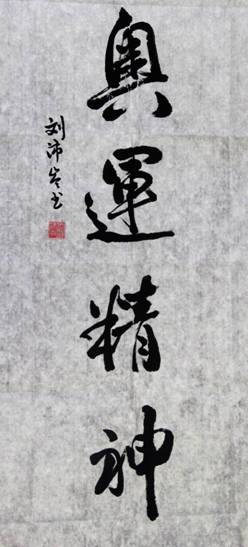 奥運精神
刘沛岑书